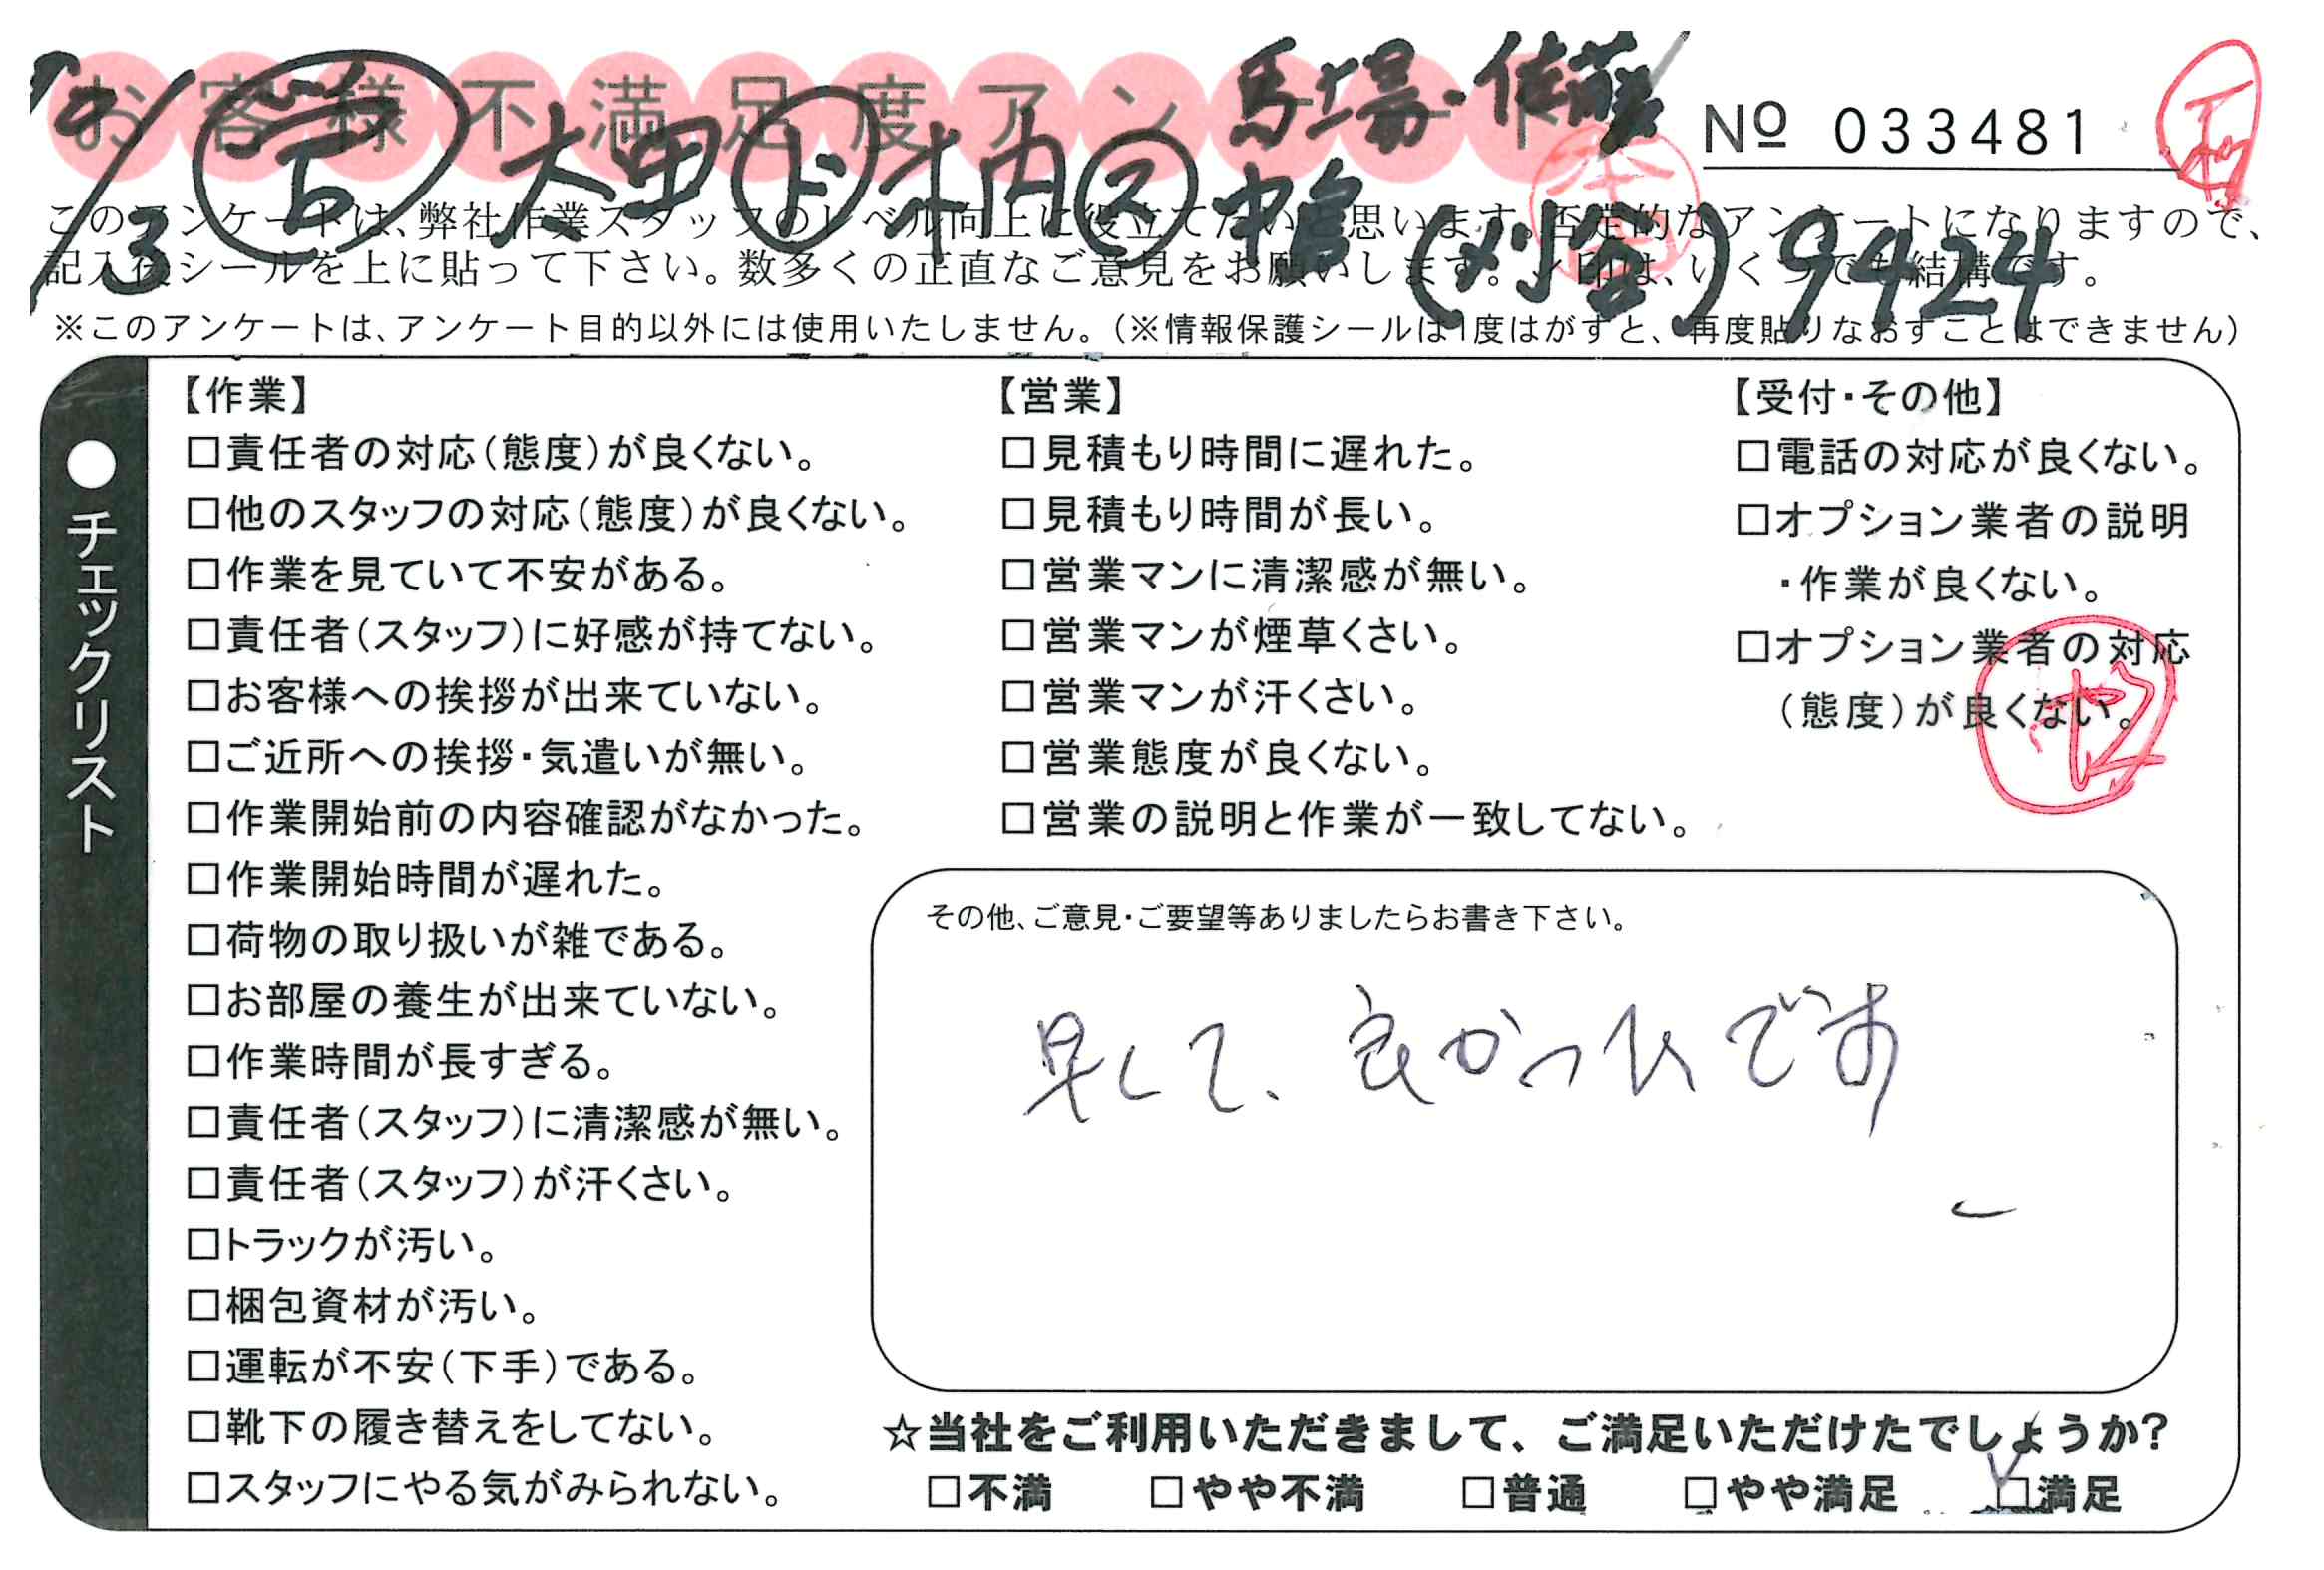 お客様不満足度アンケート
馬場・佐藤
№ 033481
太田 ド 木内 ス 中島 (刈谷) 9424
このアンケートは、弊社作業スタッフのレベル向上に役立てたいと思います。否定的なアンケートになりますので、
記入後シールを上に貼って下さい。数多くの正直なご意見をお願いします。レ印は、いくつでも結構です。
※このアンケートは、アンケート目的以外には使用いたしません。(※情報保護シールは1度はがすと、再度貼りなおすことはできません)
●チェックリスト
【作業】
□責任者の対応(態度)が良くない。
□他のスタッフの対応(態度)が良くない。
□作業を見ていて不安がある。
□責任者(スタッフ)に好感が持てない。
□お客様への挨拶が出来ていない。
□ご近所への挨拶・気遣いが無い。
□作業開始前の内容確認がなかった。
□作業開始時間が遅れた。
□荷物の取り扱いが雑である。
□お部屋の養生が出来ていない。
□作業時間が長すぎる。
□責任者(スタッフ)に清潔感が無い。
□責任者(スタッフ)が汗くさい。
□トラックが汚い。
□梱包資材が汚い。
□運転が不安(下手)である。
□靴下の履き替えをしてない。
□スタッフにやる気がみられない。
【営業】
□見積もり時間に遅れた。
□見積もり時間が長い。
□営業マンに清潔感が無い。
□営業マンが煙草くさい。
□営業マンが汗くさい。
□営業態度が良くない。
□営業の説明と作業が一致してない。
【受付・その他】
□電話の対応が良くない。
□オプション業者の説明
・作業が良くない。
□オプション業者の対応
(態度)が良くない。
その他、ご意見・ご要望等ありましたらお書き下さい。
早くて、良かったです
☆当社をご利用いただきまして、ご満足いただけたでしょうか?
□不満 □やや不満 □普通 □やや満足 ☑満足